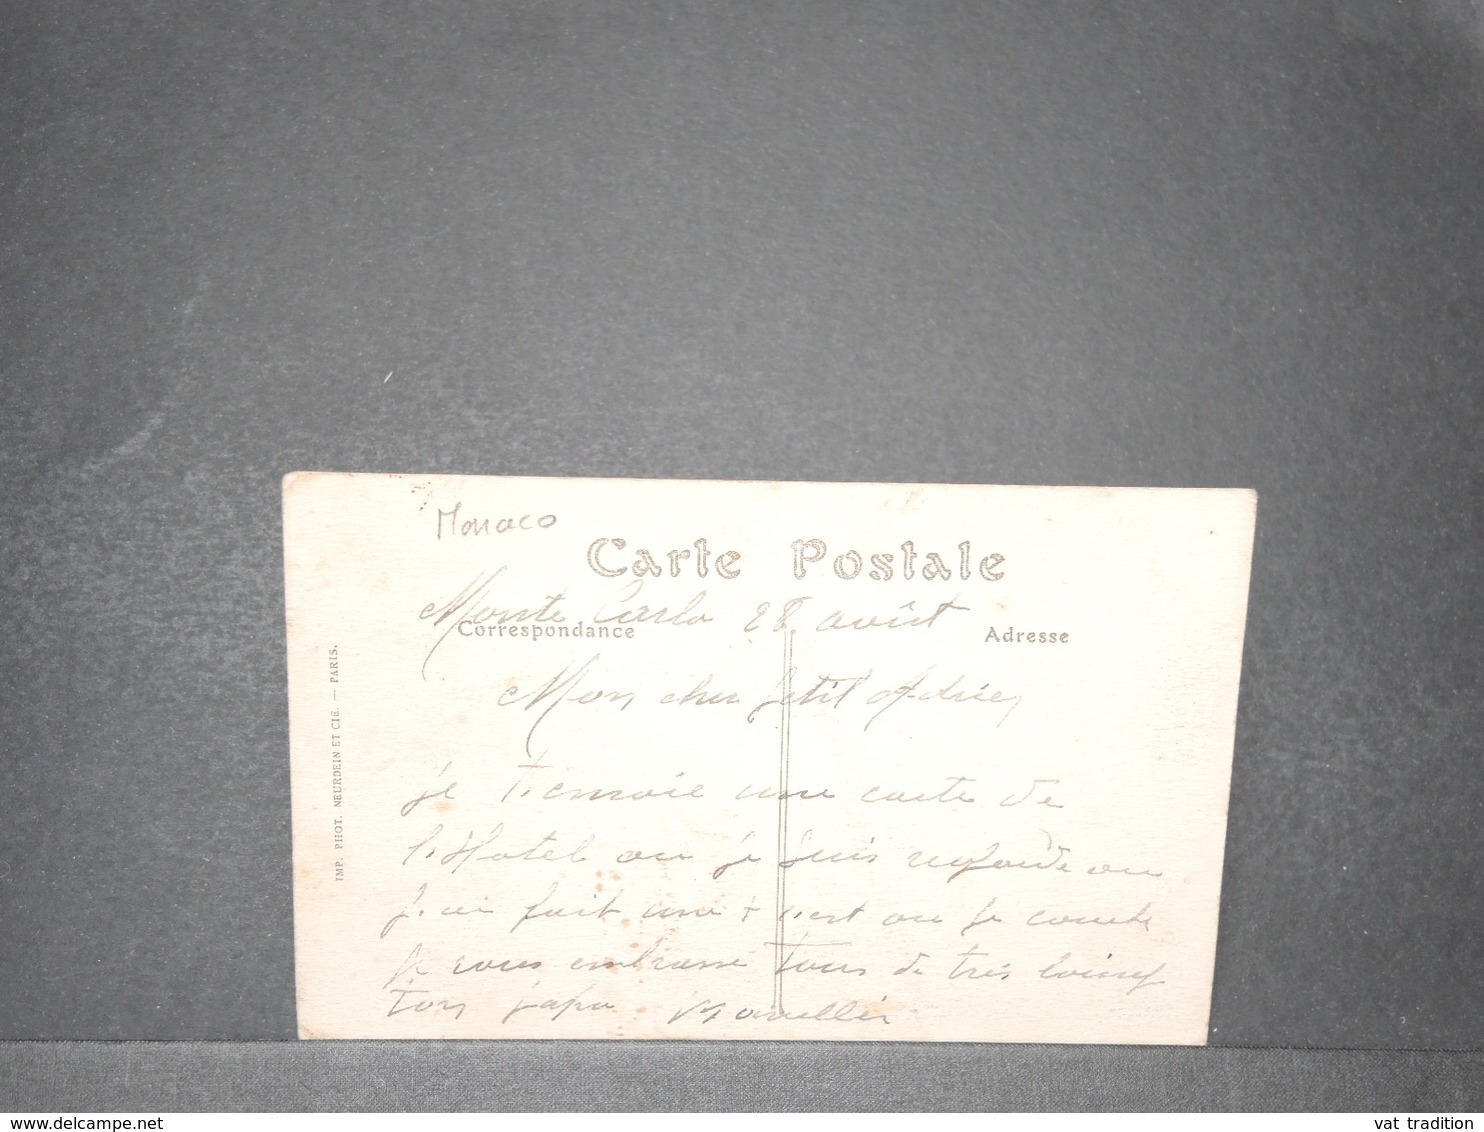 Monaco
Carte Postale
Monte Carlo 28 août
Correspondance
Adresse
Mon cher petit Adrien
je t'envoie une carte de
l'Hotel ou je suis regarde ou
j'ai fait une + c'est ou je couche
je vous embrasse tous de très loing
ton papa
IMP. PHOT. NEURDEIN ET CIE. — PARIS.
vat tradition